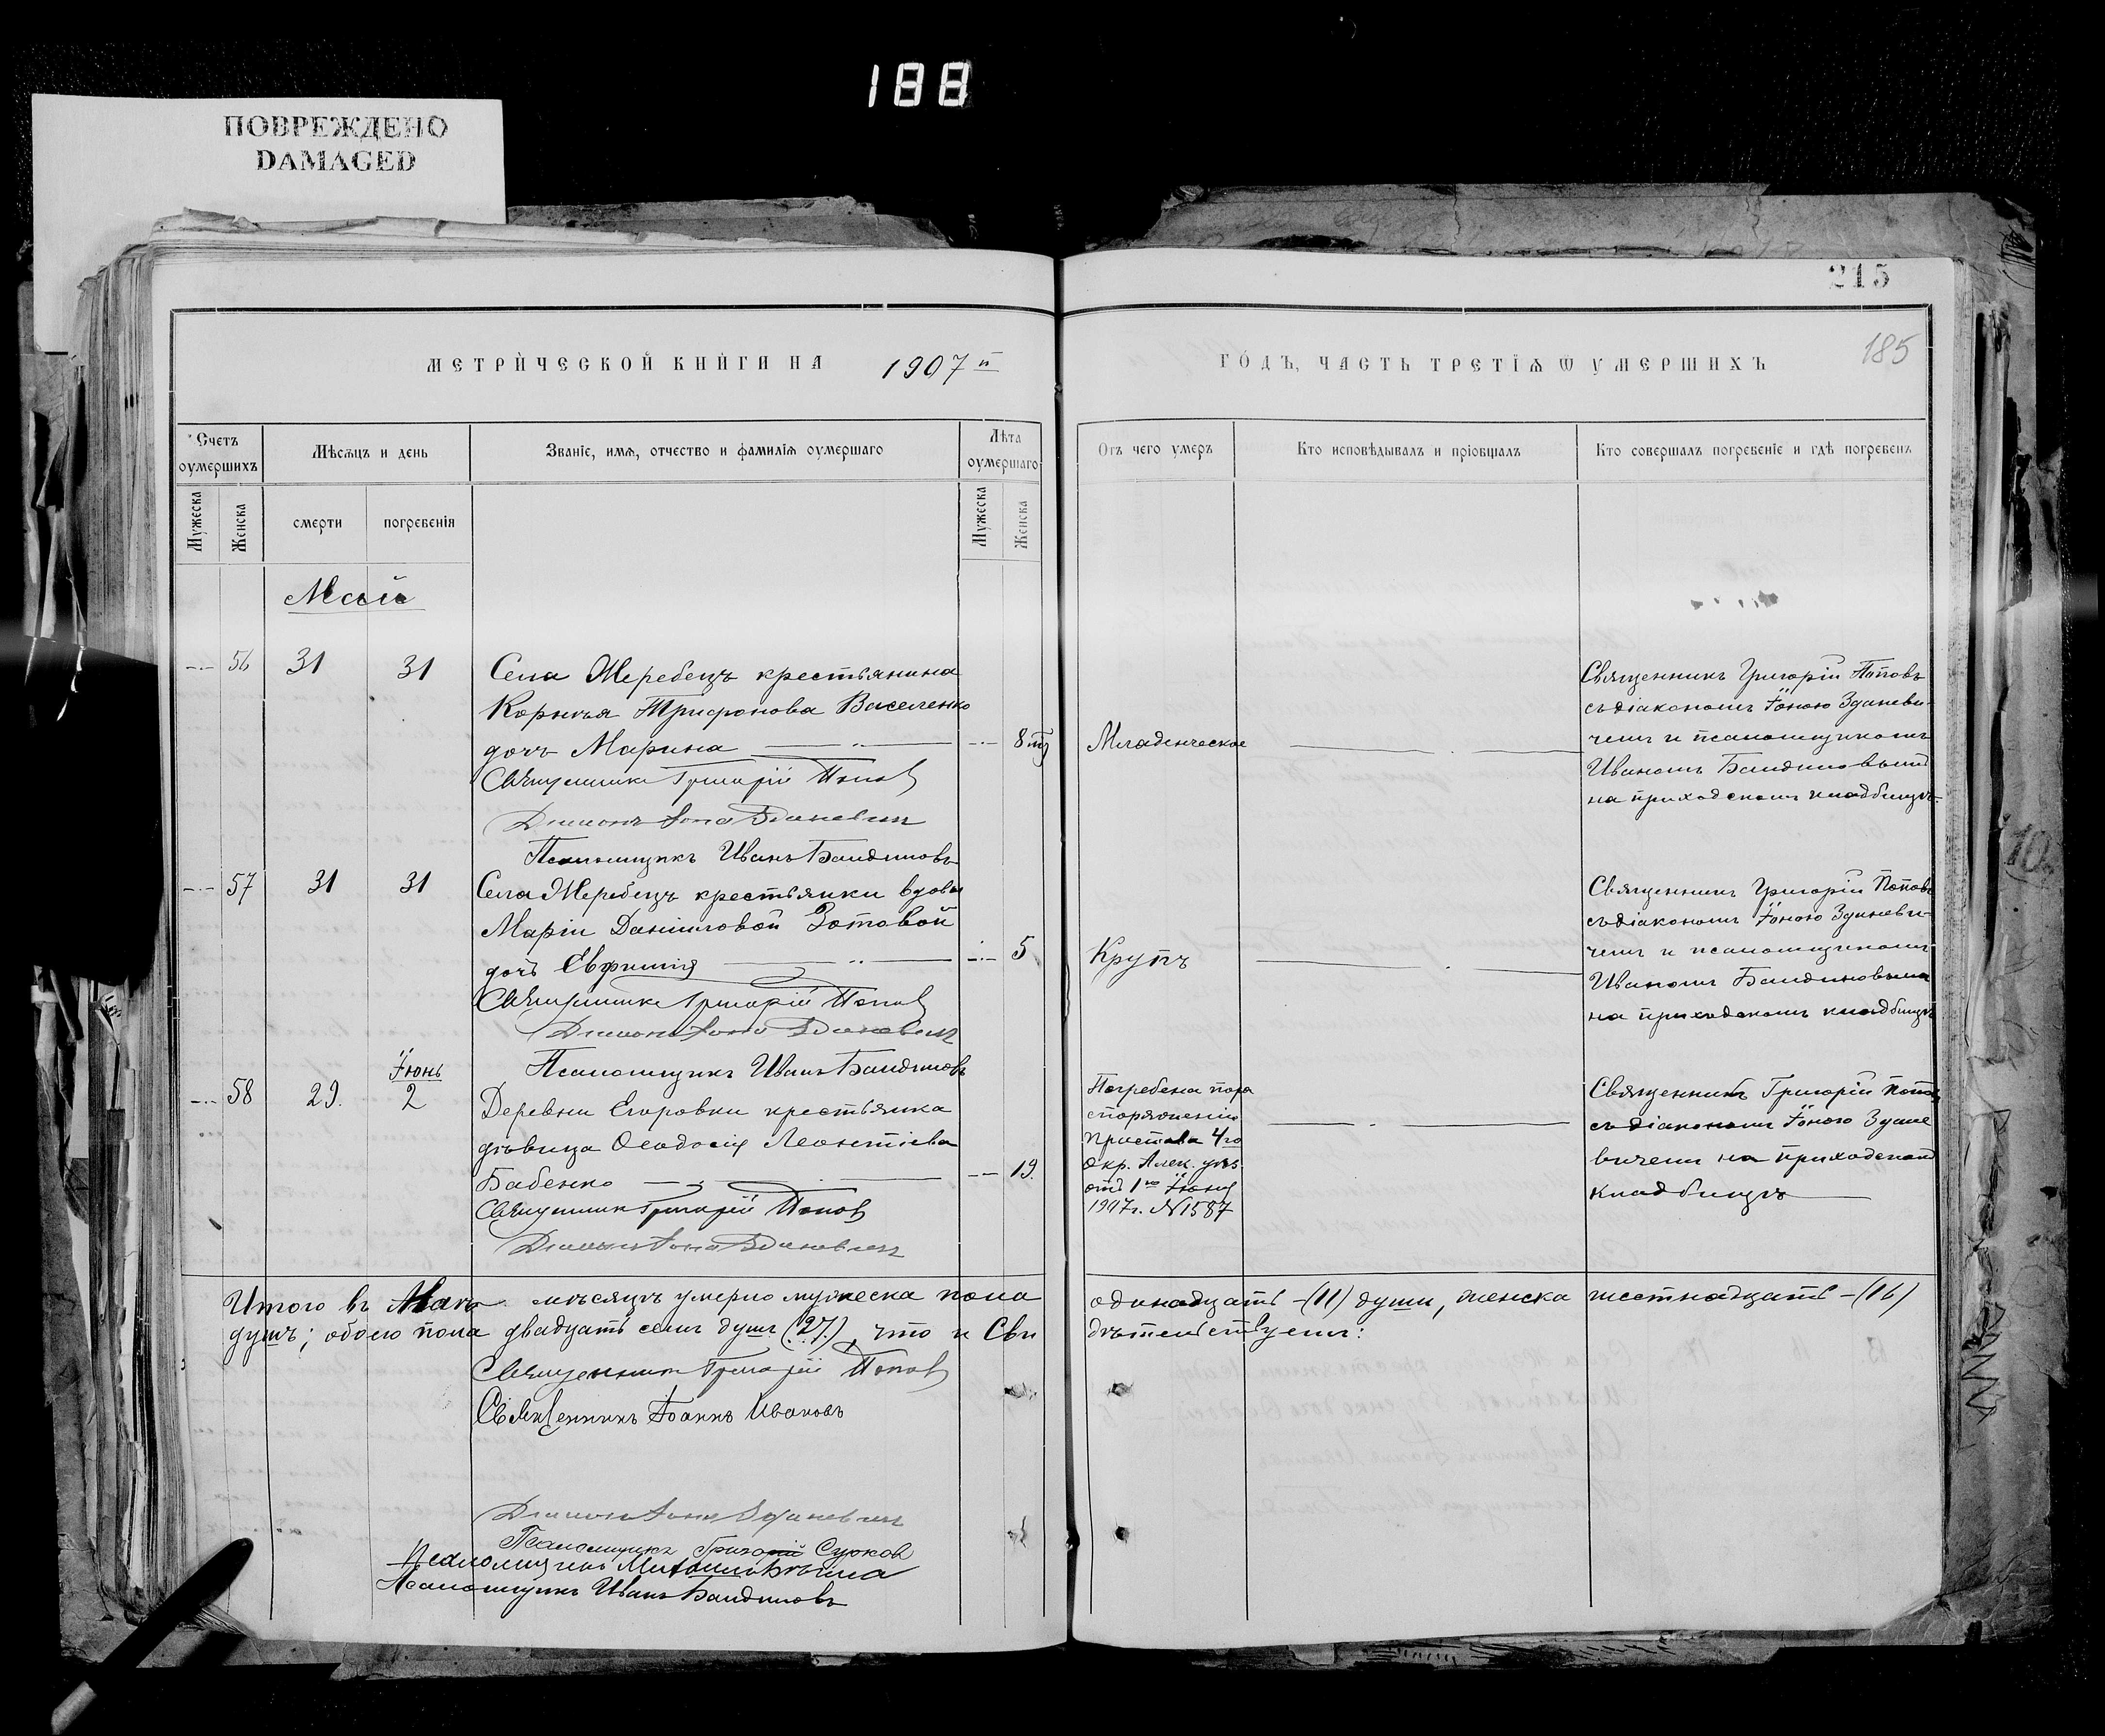 188
ПОВРЕЖДЕНО
DAMAGED
215
185
МЕТРИЧЕСКОЙ КНИГИ НА 1907 й
ГОДЪ, ЧАСТЬ ТРЕТІЯ Ѿ УМЕРШИХЪ
Счетъ оумершихъ
Мѣсяцъ и день
Званіе, имя, отчество и фамилія оумершаго
Лѣта оумершаго
Отъ чего умеръ
Кто исповѣдывалъ и пріобщалъ
Кто совершалъ погребеніе и гдѣ погребенъ
Мужеска
Женска
смерти
погребенія
Мужеска
Женска
Май
56 31 31
Села Жеребецъ крестьянина
Корнилія Трифонова Василенко
дочь Марина 8 м
Священникъ Григорій Поповъ
Діаконъ Іона Зданевич
Псаломщикъ Иванъ Бандиловъ
Младенческое
Священникъ Григорій Поповъ
съ діакономъ Іоною Зданеви-
чемъ и псаломщикомъ
Иваномъ Бандиловымъ
на приходскомъ кладбищѣ.
57 31 31
Села Жеребецъ крестьянки вдовы
Маріи Данииловой Зотовой
дочь Евфимія 5
Священникъ Григорій Поповъ
Діаконъ Іона Зданевич
Псаломщикъ Иванъ Бандиловъ
Крупъ
Священникъ Григорій Поповъ
съ діакономъ Іоною Зданеви-
чемъ и псаломщикомъ
Иваномъ Бандиловымъ
на приходскомъ кладбищѣ
Іюнь
58 29. 2
Деревни Егоровки крестьянка
дѣвица Ѳеодосія Леонтіева
Бабенко 19.
Священникъ Григорій Поповъ
Діаконъ Іона Зданевич
Погребена по ра
споряженію
Пристава 4го
Окр. Алек. уѣз.
отъ 1го Іюня
1907г. №1587
Священникъ Григорій Поповъ
съ діакономъ Іоною Здане
вичемъ на приходскомъ
кладбищѣ
Итого въ Маѣ мѣсяцѣ умерло мужеска пола одинадцать -(11) души, женска шестнадцать -(16)
душъ; обоего пола двадцать семь душъ (27), что и Сви дѣтельствуемъ:
Священникъ Григорій Поповъ
Священникъ Іоаннъ Ивановъ
Діаконъ Іона Зданевич
Псаломщикъ Григорій Сурков
Псаломщикъ
Псаломщикъ Иванъ Бандиловъ